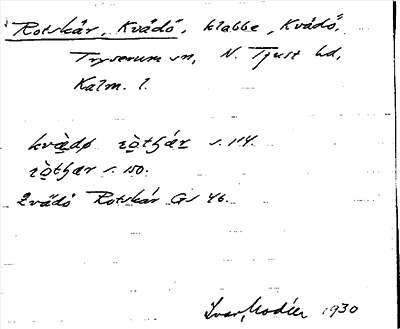 Rotskär, Kvädö, klabbe, Kvädö,
Tryserum sn, N. Tjust hd,
Kalm. l.
kvàdø ròtʃär s. 114.
ròtʃär s. 150.
Kvädö Rotskär GS 46.
Ivar Modéer 1930